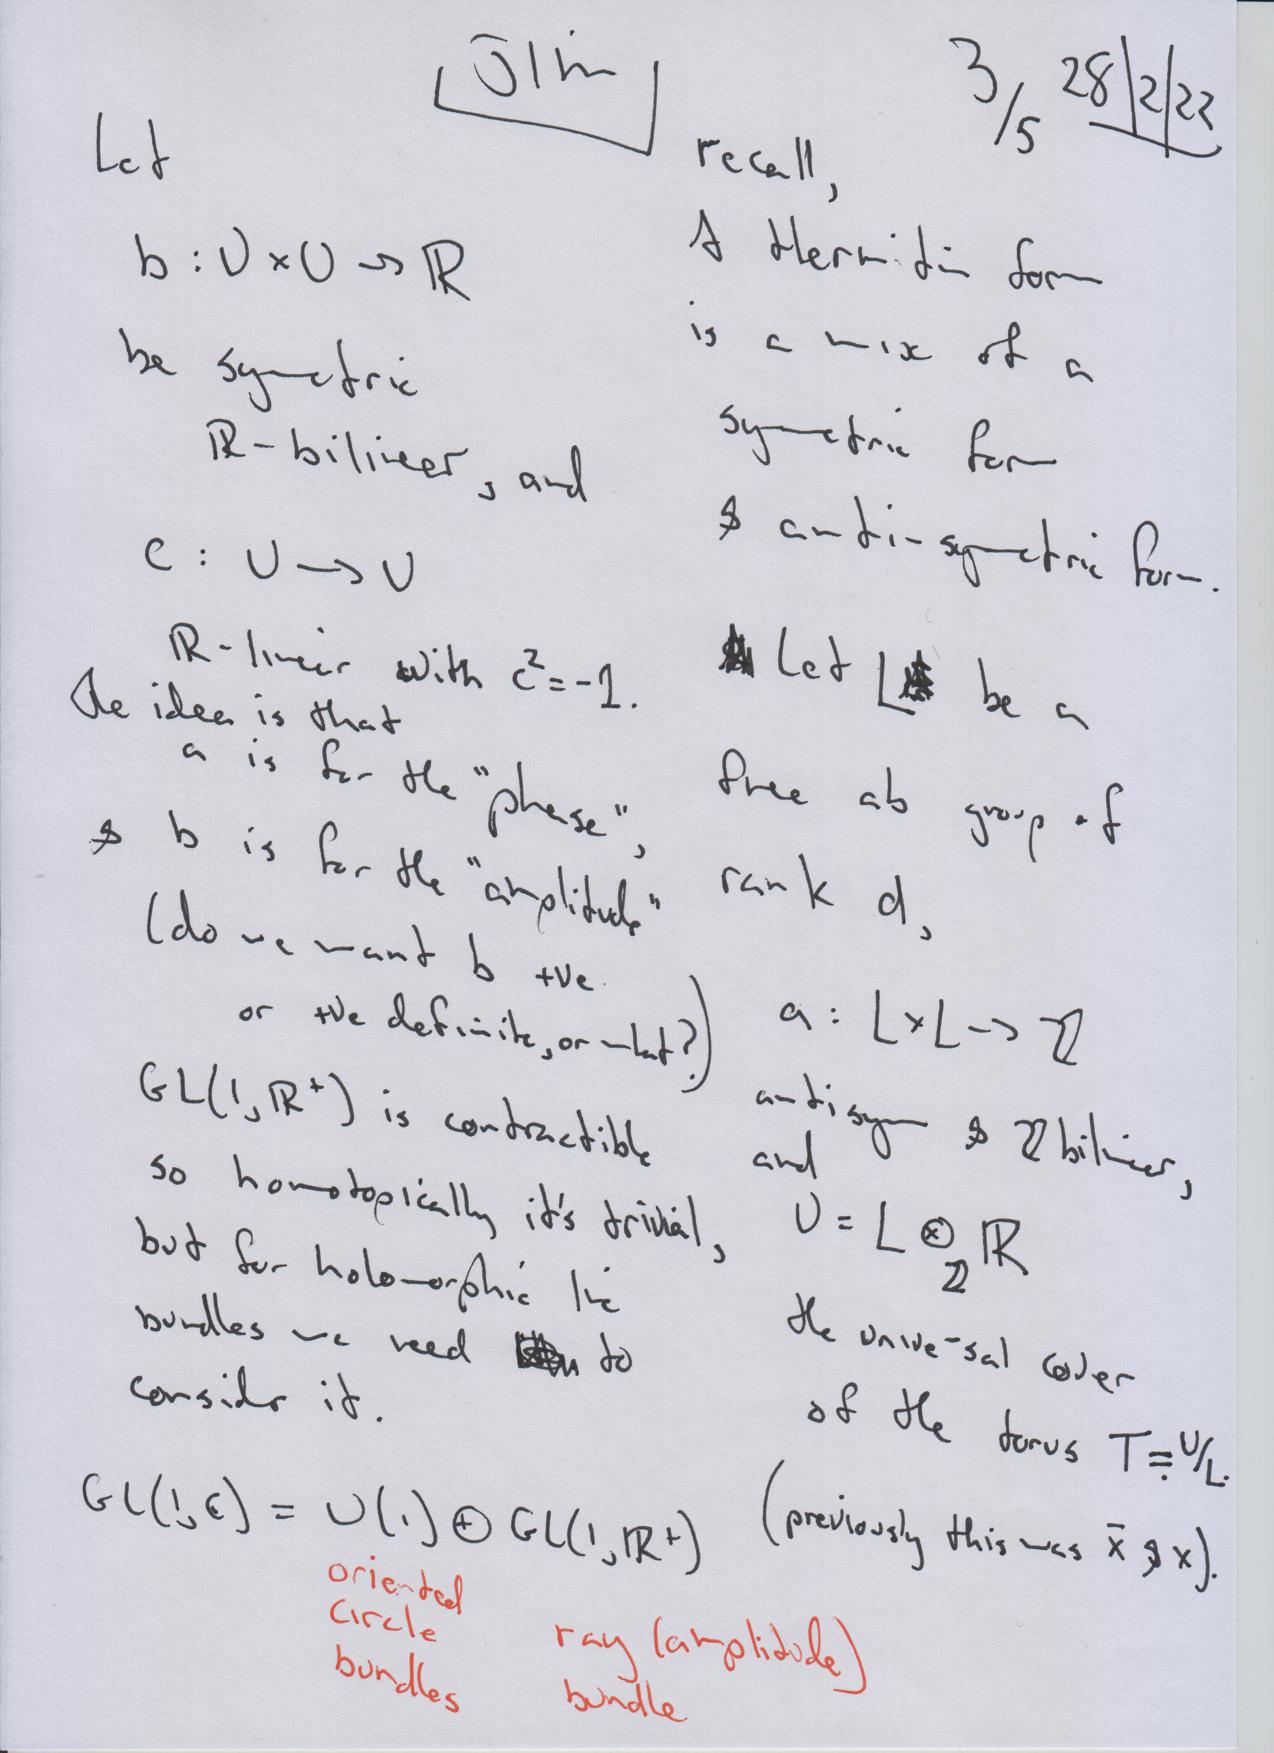 3/5 28/2/22
Let
b : U × U → ℝ
be symetric
ℝ-bilineer, and
c : U → U
ℝ-linear with c² = -1.
The idea is that
a is for the "phase",
& b is for the "amplitude"
(do we want b +ve
or +ve definite, or what?)
GL(1, ℝ⁺) is contractible
so homotopically it's trivial,
but for holomorphic line
bundles we need to
consider it.
GL(1, ℂ) = U(1) ⊕ GL(1, ℝ⁺)
oriented
circle
bundles
ray (amplitude)
bundle
recall,
A Hermitin form
is a mix of a
symmetric form
& anti-symetric form.
Let L be a
free ab group of
rank d,
a : L × L → ℤ
antisym & ℤ bilinear,
and
U = L ⊗_ℤ ℝ
the universal cover
of the torus T = U/L.
(previously this was x̄ & x).